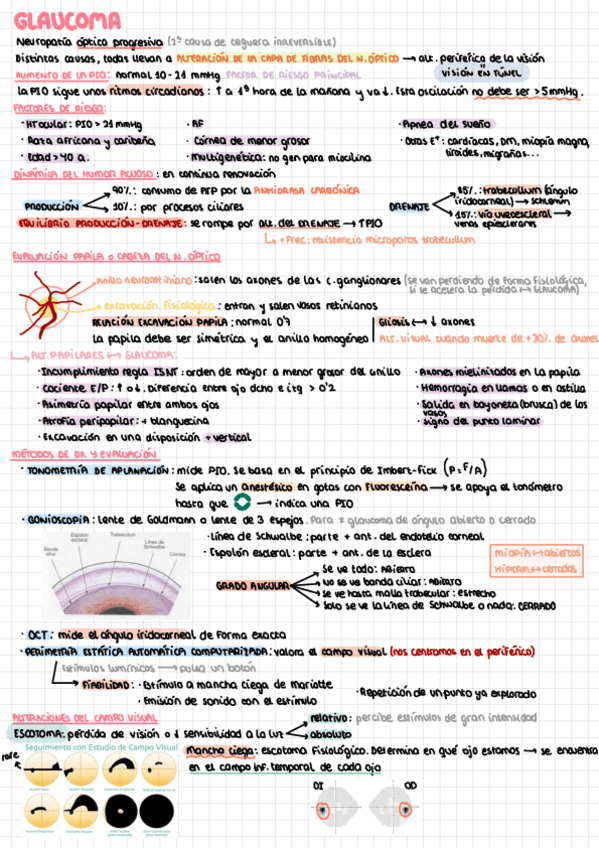 GLAUCOMA
Neuropatía óptica progresiva (2ª causa de ceguera IRREVERSIBLE)
Distintas causas, todas llevan a ALTERACIÓN DE LA CAPA DE FIBRAS DEL N. ÓPTICO → alt. periférica de la visión
VISIÓN EN TÚNEL
AUMENTO DE LA PIO: normal 10-21 mmHg. FACTOR DE RIESGO PRINCIPAL
La PIO sigue unos ritmos circadianos: ↑ a 1ª hora de la mañana y va ↓. Esta oscilación no debe ser > 5mmHg.
FACTORES DE RIESGO:
· HTocular: PIO > 21 mmHg
· AF
· Apnea del sueño
· Raza africana y caribeña
· Córnea de menor grosor
· Otras E*: cardíacas, DM, miopía magna, tiroides, migrañas...
· Edad > 40 a.
· Multigenética: no gen para
DINÁMICA DEL HUMOR ACUOSO: en continua renovación
PRODUCCIÓN
90%: consumo de ATP por la ANHIDRASA CARBÓNICA
10%: por procesos ciliares
DRENAJE
85%: trabeculum (ángulo iridocorneal) → Schlemm
15%: vía uveoescleral → venas epiesclerares
EQUILIBRIO PRODUCCIÓN-DRENAJE: se rompe por alt. del DRENAJE → ↑PIO
+ Frec: resistencia microporos trabeculum
EVALUACIÓN PAPILA O CABEZA DEL N. ÓPTICO
Anillo neurorretiniano: salen los axones de las c. ganglionares (se van perdiendo de forma fisiológica, si se acelera la pérdida ↔ GLAUCOMA)
Excavación Fisiológica: entran y salen vasos retinianos
RELACIÓN EXCAVACIÓN PAPILA: normal 0'7
Gliosis ↔ ↓ axones
La papila debe ser simétrica y el anillo homogéneo
Alt. visual cuando muerte de +30% de axones
ALT. PAPILARES ↔ GLAUCOMA:
· Incumplimiento regla ISNT: orden de mayor a menor grosor del anillo
· Axones mielinizados en la papila
· Cociente E/P: ↑ o ↓. Diferencia entre ojo dcho e izq > 0'2
· Hemorragia en llamas o en astilla
· Asimetría papilar entre ambos ojos
· Salida en bayoneta (brusca) de los vasos
· Atrofia peripapilar: + blanquecina
· Signo del punto laminar
· Excavación en una disposición + vertical
MÉTODOS DE DX Y EVALUACIÓN
· TONOMETRÍA DE APLANACIÓN: mide PIO. Se basa en el principio de Imbert-Fick (P = F/A)
Se aplica un anestésico en gotas con Fluoresceína → se apoya el tonómetro
hasta que → indica una PIO
· GONIOSCOPIA: lente de Goldmann o lente de 3 espejos. Para ≠ glaucoma de ángulo abierto o cerrado
Espolón escleral
Trabeculum
Línea de Schwalbe
Banda ciliar
Cornea
· Línea de Schwalbe: parte + ant. del endotelio corneal
· Espolón escleral: parte + ant. de la esclera
MIOPÍA ↔ abiertos
HIPERM ↔ cerrados
GRADO ANGULAR
Se ve todo: ABIERTO
No se ve banda ciliar: ABIERTO
Se ve hasta malla trabecular: estrecho
Solo se ve la línea de Schwalbe o nada: CERRADO
· OCT: mide el ángulo iridocorneal de forma exacta
· PERIMETRÍA ESTÁTICA AUTOMÁTICA COMPUTARIZADA: valora el campo visual (nos centramos en el periférico)
Estímulos lumínicos → pulsa un botón
FIABILIDAD: · Estímulo a mancha ciega de Mariotte
· Repetición de un punto ya explorado
· Emisión de sonido con el estímulo
ALTERACIONES DEL CAMPO VISUAL
ESCOTOMA: pérdida de visión o ↓ sensibilidad a la luz
relativo: percibe estímulos de gran intensidad
absoluto
Seguimiento con Estudio de Campo Visual
Mancha ciega: escotoma Fisiológico. Determina en qué ojo estamos → se encuentra
en el campo inf. temporal de cada ojo
OI
OD